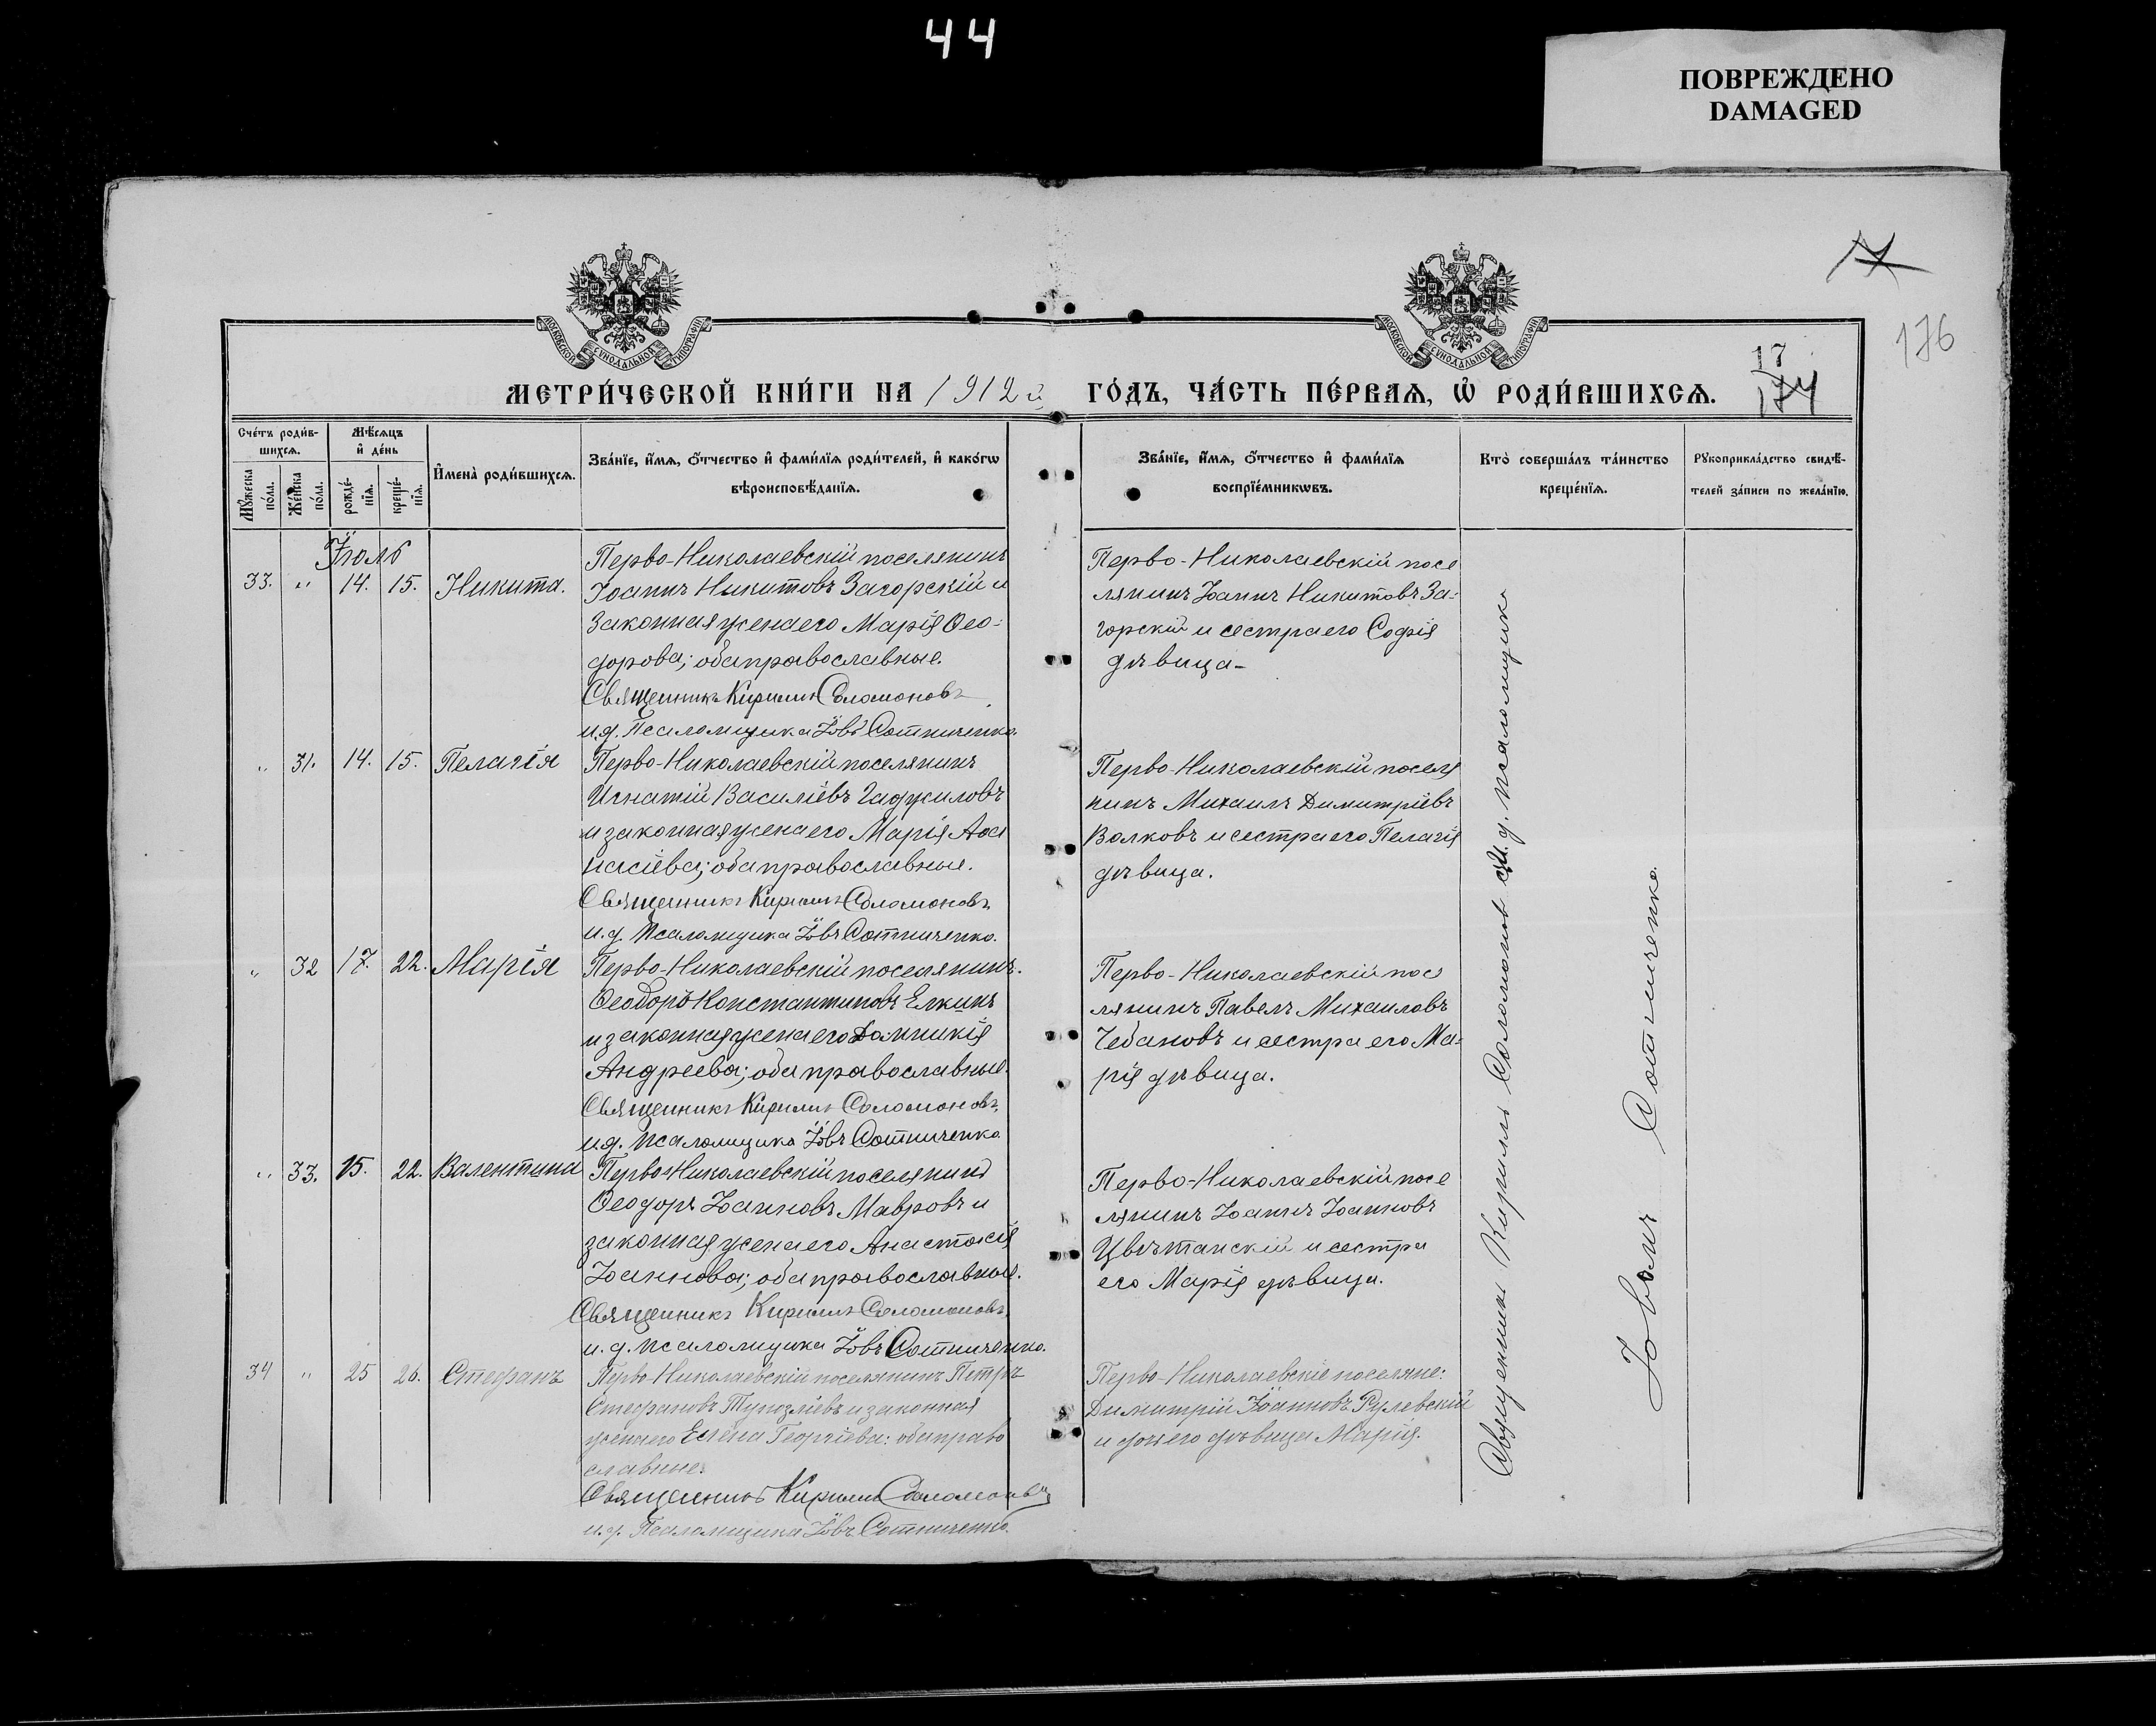 44
ПОВРЕЖДЕНО
DAMAGED
176
17
174
МОСКОВСКОЙ СѴНОДАЛЬНОЙ ТИПОГРАФІИ
МОСКОВСКОЙ СѴНОДАЛЬНОЙ ТИПОГРАФІИ
МЕТРИ́ЧЕСКОЙ КНИ́ГИ НА 1912й
ГО́ДЪ, ЧА́СТЬ ПЕ́РВАѦ, Ѡ҆ РОДИ́ВШИХСѦ.
Сче́тъ роди́в-
шихсѧ.
Мѣ́сѧцъ
и҆ де́нь
Мꙋ́жеска
по́ла.
Же́нска
по́ла.
рожде́-
нїѧ.
креще́-
нїѧ.
И҆мена̀ роди́вшихсѧ.
Зва́нїе, и҆́мѧ, ѻ҆́тчество и҆ фами́лїѧ роди́телей, и҆ како́гѡ
вѣроисповѣ́данїѧ.
Зва́нїе, и҆́мѧ, ѻ҆́тчество и҆ фами́лїѧ
воспрїе́мникѡвъ.
Кто̀ соверша́лъ та́инство
креще́нїѧ.
Рꙋкоприкла́дство свидѣ́-
телей за́писи по жела́нїю.
Іюль
33. " 14. 15. Никита.
Перво-Николаевскій поселянинъ
Іоаннъ Никитовъ Загорскій и
законная жена его Марія Ѳео-
дорова; оба православные.
Священникъ Кириллъ Соломоновъ
и.д. Псаломщика Іовъ Сотниченко.
Перво-Николаевскій посе
лянинъ Іоаннъ Никитовъ За-
горскій и сестра его Софія
дѣвица-
" 31. 14. 15. Пелагія
Перво-Николаевскій поселянинъ
Игнатій Василіевъ Гаджиловъ
и законная жена его Марія Аѳа
насіева; оба православные.
Священникъ Кириллъ Соломоновъ
и.д. Псаломщика Іовъ Сотниченко.
Перво-Николаевскій поселя
нинъ Михаилъ Димитріевъ
Волковъ и сестра его Пелагія
дѣвица.
" 32 17. 22. Марія
Перво-Николаевскій поселянинъ.
Ѳеодоръ Константиновъ Елкинъ
и законная жена его Домникія
Андреева; оба православные.
Священникъ Кириллъ Соломоновъ,
и.д. Псаломщика Іовъ Сотниченко.
Перво-Николаевскій посе
лянинъ Павелъ Михаиловъ
Чебановъ и сестра его Ма-
рія дѣвица.
" 33. 15. 22. Валентина
Перво-Николаевскій поселянинъ
Ѳеодоръ Іоанновъ Мавровъ и
законная жена его Анастасія
Іоаннова; оба православные.
Священникъ Кириллъ Соломоновъ,
и.д. Псаломщика Іовъ Сотниченко.
Перво-Николаевскій посе
лянинъ Іоаннъ Іоанновъ
Цвѣтанскій и сестра
его Марія дѣвица.
34 " 25 26. Стефанъ
Перво-Николаевскій поселянинъ Петръ
Стефановъ Тупозліевъ и законная
жена его Елена Георгіева: оба право
славные.
Священникъ Кириллъ Соломоновъ
и.д. Псаломщика Іовъ Сотниченко.
Перво-Николаевскіе поселяне:
Димитрій Іоанновъ Рулевскій
и дочь его дѣвица Марія.
Священникъ Кириллъ Соломоновъ и.д. псаломщика
Іовъ Сотниченко.